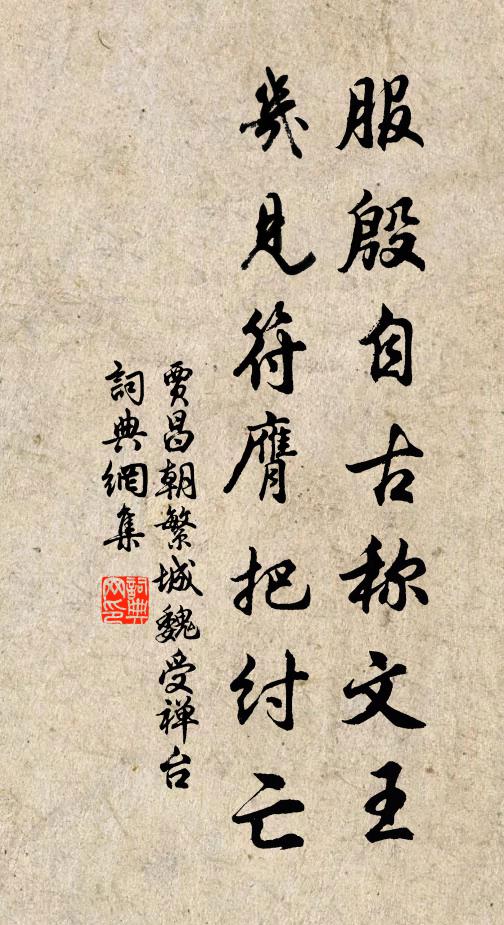 服殷自古称文王
几见符膺把纣亡
賈昌朝繁城魏受禅台
詞典網集
詞典网印